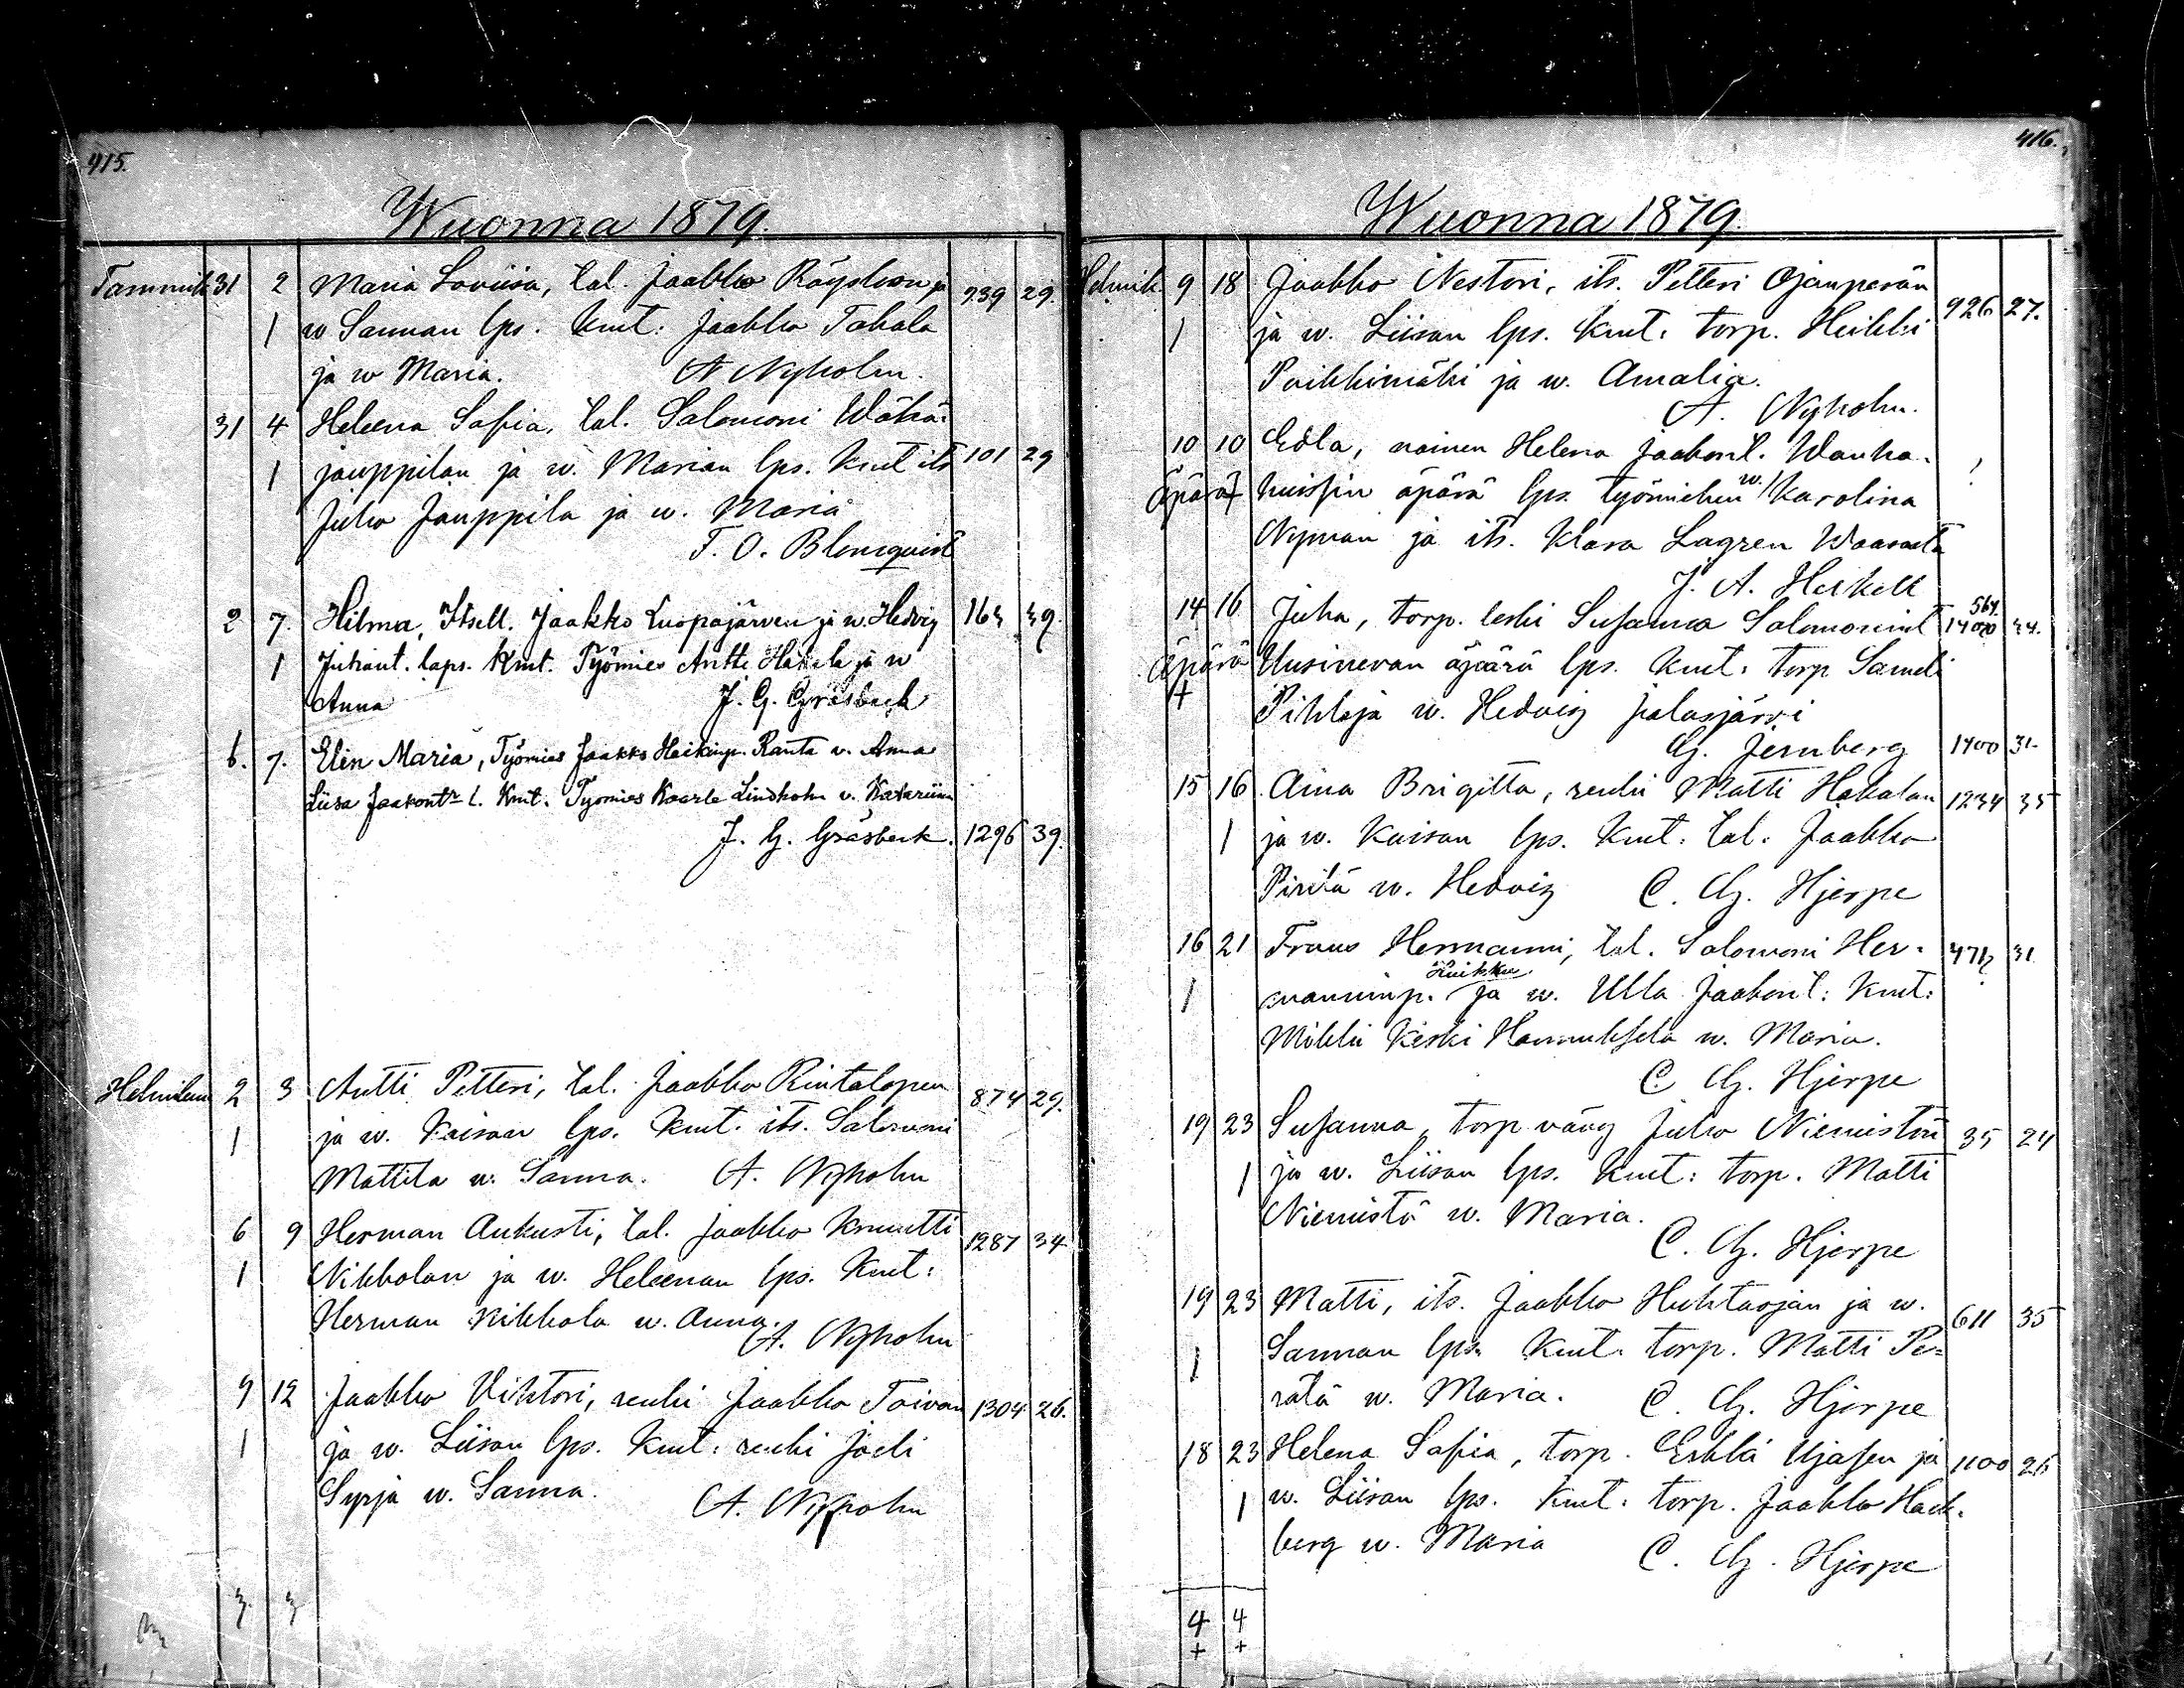 415.
Wuonna 1879.
Tammik 31 2 Maria Loviisa, tal. Jaakko Räyskön ja 939 29.
1 w Sannan lps. Kmt: Jaakko Takala
ja w Maria. A Nyholm.
31 4 Heleena Sofia, tal. Salomoni Wähä-
1 jauppilan ja w. Marian lps. Kmt its 101 29
Juho Jauppila ja w. Maria
T. O. Blomquist
2 7. Hilma, Itsell. Jaakko Luopajärwen ja w. Hedvig 163 39.
1 Juhant. laps. Kmt. Työmies Antti Hakala ja w
Anna J. G. Gräsbeck
6. 7. Elin Maria, Työmies Jaakko Heikinp. Ranta v. Anna
Liisa Jaakontr l. Kmt. Työmies Kaarle Lindholm v. Katariina
J. G. Gräsbeck. 1296 39.
Helmikuu 2 3 Antti Petteri, tal. Jaakko Rintalopen 874 29.
1 ja w. Kaisan lps. Kmt. its. Salomoni
Mattila w. Sanna. A. Nyholm
6 9 Herman Aukusti, tal. Jaakko Knuutti 1287 34
1 Nikkolan ja w. Heleenan lps. Kmt:
Herman Nikkola w. Anna.
A. Nyholm
9 12 Jaakko Vihtori, renki Jaakko Toivan 1304 26.
1 ja w. Liisan lps. Kmt: renki Joeli
Syrjä w. Sanna. A. Nyholm
3 3
416.
Wuonna 1879.
Helmik 9 18 Jaakko Nestori, its. Petteri Ojanperän 926 27.
1 ja w. Liisan lps. Kmt: torp. Heikki
Poikkimäki ja w. Amalia.
A. Nyholm.
10 10 Edla, nainen Helena Jaakont. Wanha-
äpärä huissin äpärä lps. työmiehen w. Karolina
Nyman ja its. Klara Lagren Waasasta
J. A. Heikell
14 16 Juha, torp. leski Susanna Salomonint 564. 1400 34.
äpärä Uusinevan äpärä lps. Kmt: torp Sameli
+ Pihlaja w. Hedvig Jalasjärvi
G. Jernberg 1400 31.
15 16 Aina Brigitta, renki Matti Hakalan 1234 35
1 ja w. Kaisan lps. Kmt: tal. Jaakko
Piritä w. Hedvig C. G. Hjerpe
16 21 Frans Hermanni, tal. Salomoni Her- 471 31
Huikku
1 manninp. ja w. Ulla Jaakont: Kmt:
Mikki Keski Hannuksela w. Maria.
C G. Hjerpe
19 23 Susanna, torp. vävy Juho Niemistön 35 24
1 ja w. Liisan lps. Kmt: torp. Matti
Niemistö w. Maria.
C. G. Hjerpe
19 23 Matti, its. Jaakko Huhtaojan ja w. 611 35
1 Sannan lps. Kmt. torp. Matti Pe-
rälä w. Maria. C. G. Hjerpe
18 23 Helena Sofia, torp. Erkki Ujasen ja 1100 26
1 w. Liisan lps. Kmt: torp. Jaakko Hack-
berg w. Maria C. G. Hjerpe
4 4
+ +